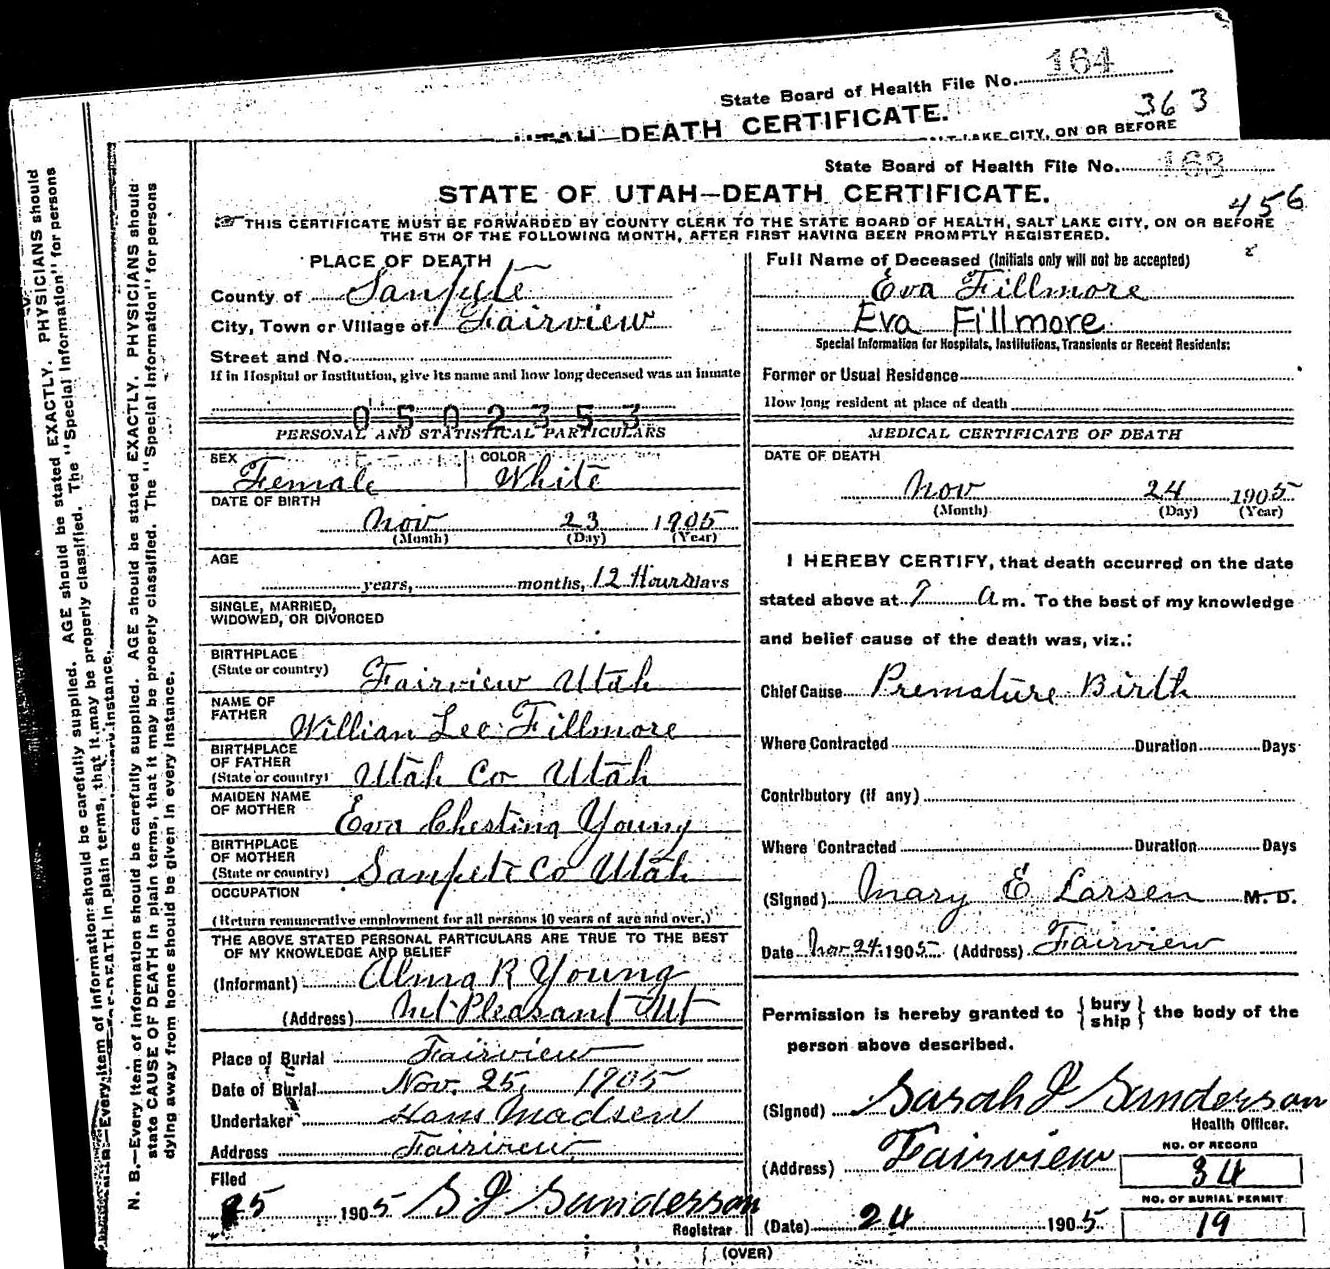 State Board of Health File No. 164
363
UTAH—DEATH CERTIFICATE.
SALT LAKE CITY, ON OR BEFORE
State Board of Health File No. 163
STATE OF UTAH—DEATH CERTIFICATE.
456
THIS CERTIFICATE MUST BE FORWARDED BY COUNTY CLERK TO THE STATE BOARD OF HEALTH, SALT LAKE CITY, ON OR BEFORE
THE 5TH OF THE FOLLOWING MONTH, AFTER FIRST HAVING BEEN PROMPTLY REGISTERED.
N. B.—Every item of information should be carefully supplied. AGE should be stated EXACTLY. PHYSICIANS should
state CAUSE OF DEATH in plain terms, that it may be properly classified. The "Special Information" for persons
dying away from home should be given in every instance.
Every item of information should be carefully supplied. AGE should be stated EXACTLY. PHYSICIANS should
DEATH in plain terms, that it may be properly classified. The "Special Information" for persons
instance.
PLACE OF DEATH
County of Sanpete
City, Town or Village of Fairview
Street and No.
If in Hospital or Institution, give its name and how long deceased was an inmate
0502353
PERSONAL AND STATISTICAL PARTICULARS
SEX Female COLOR White
DATE OF BIRTH
Nov 23 1905
(Month) (Day) (Year)
AGE
years, months, 12 Hours Days
SINGLE, MARRIED,
WIDOWED, OR DIVORCED
BIRTHPLACE
(State or country) Fairview Utah
NAME OF
FATHER Willian Lee Fillmore
BIRTHPLACE
OF FATHER
(State or country) Utah Co Utah
MAIDEN NAME
OF MOTHER Eva Chestina Young
BIRTHPLACE
OF MOTHER
(State or country) Sanpete Co Utah
OCCUPATION
(Return remunerative employment for all persons 10 years of age and over.)
THE ABOVE STATED PERSONAL PARTICULARS ARE TRUE TO THE BEST
OF MY KNOWLEDGE AND BELIEF
(Informant) Alma R Young
(Address) Mt Pleasant Ut
Place of Burial Fairview
Date of Burial Nov. 25, 1905
Undertaker Hans Madsen
Address Fairview
Filed
25 1905 S J Sanderson
Registrar
Full Name of Deceased (Initials only will not be accepted)
Eva Fillmore
Eva Fillmore
Special Information for Hospitals, Institutions, Transients or Recent Residents:
Former or Usual Residence
How long resident at place of death
MEDICAL CERTIFICATE OF DEATH
DATE OF DEATH
Nov 24 1905
(Month) (Day) (Year)
I HEREBY CERTIFY, that death occurred on the date
stated above at 7 a m. To the best of my knowledge
and belief cause of the death was, viz.:
Chief Cause Premature Birth
Where Contracted Duration Days
Contributory (if any)
Where Contracted Duration Days
(Signed) Mary E Larsen M. D.
Date Nov 24 1905 (Address) Fairview
Permission is hereby granted to { bury ship } the body of the
person above described.
(Signed) Sarah J Sanderson
Health Officer.
(Address) Fairview
NO. OF RECORD
34
NO. OF BURIAL PERMIT
19
(Date) 24 1905
(OVER)